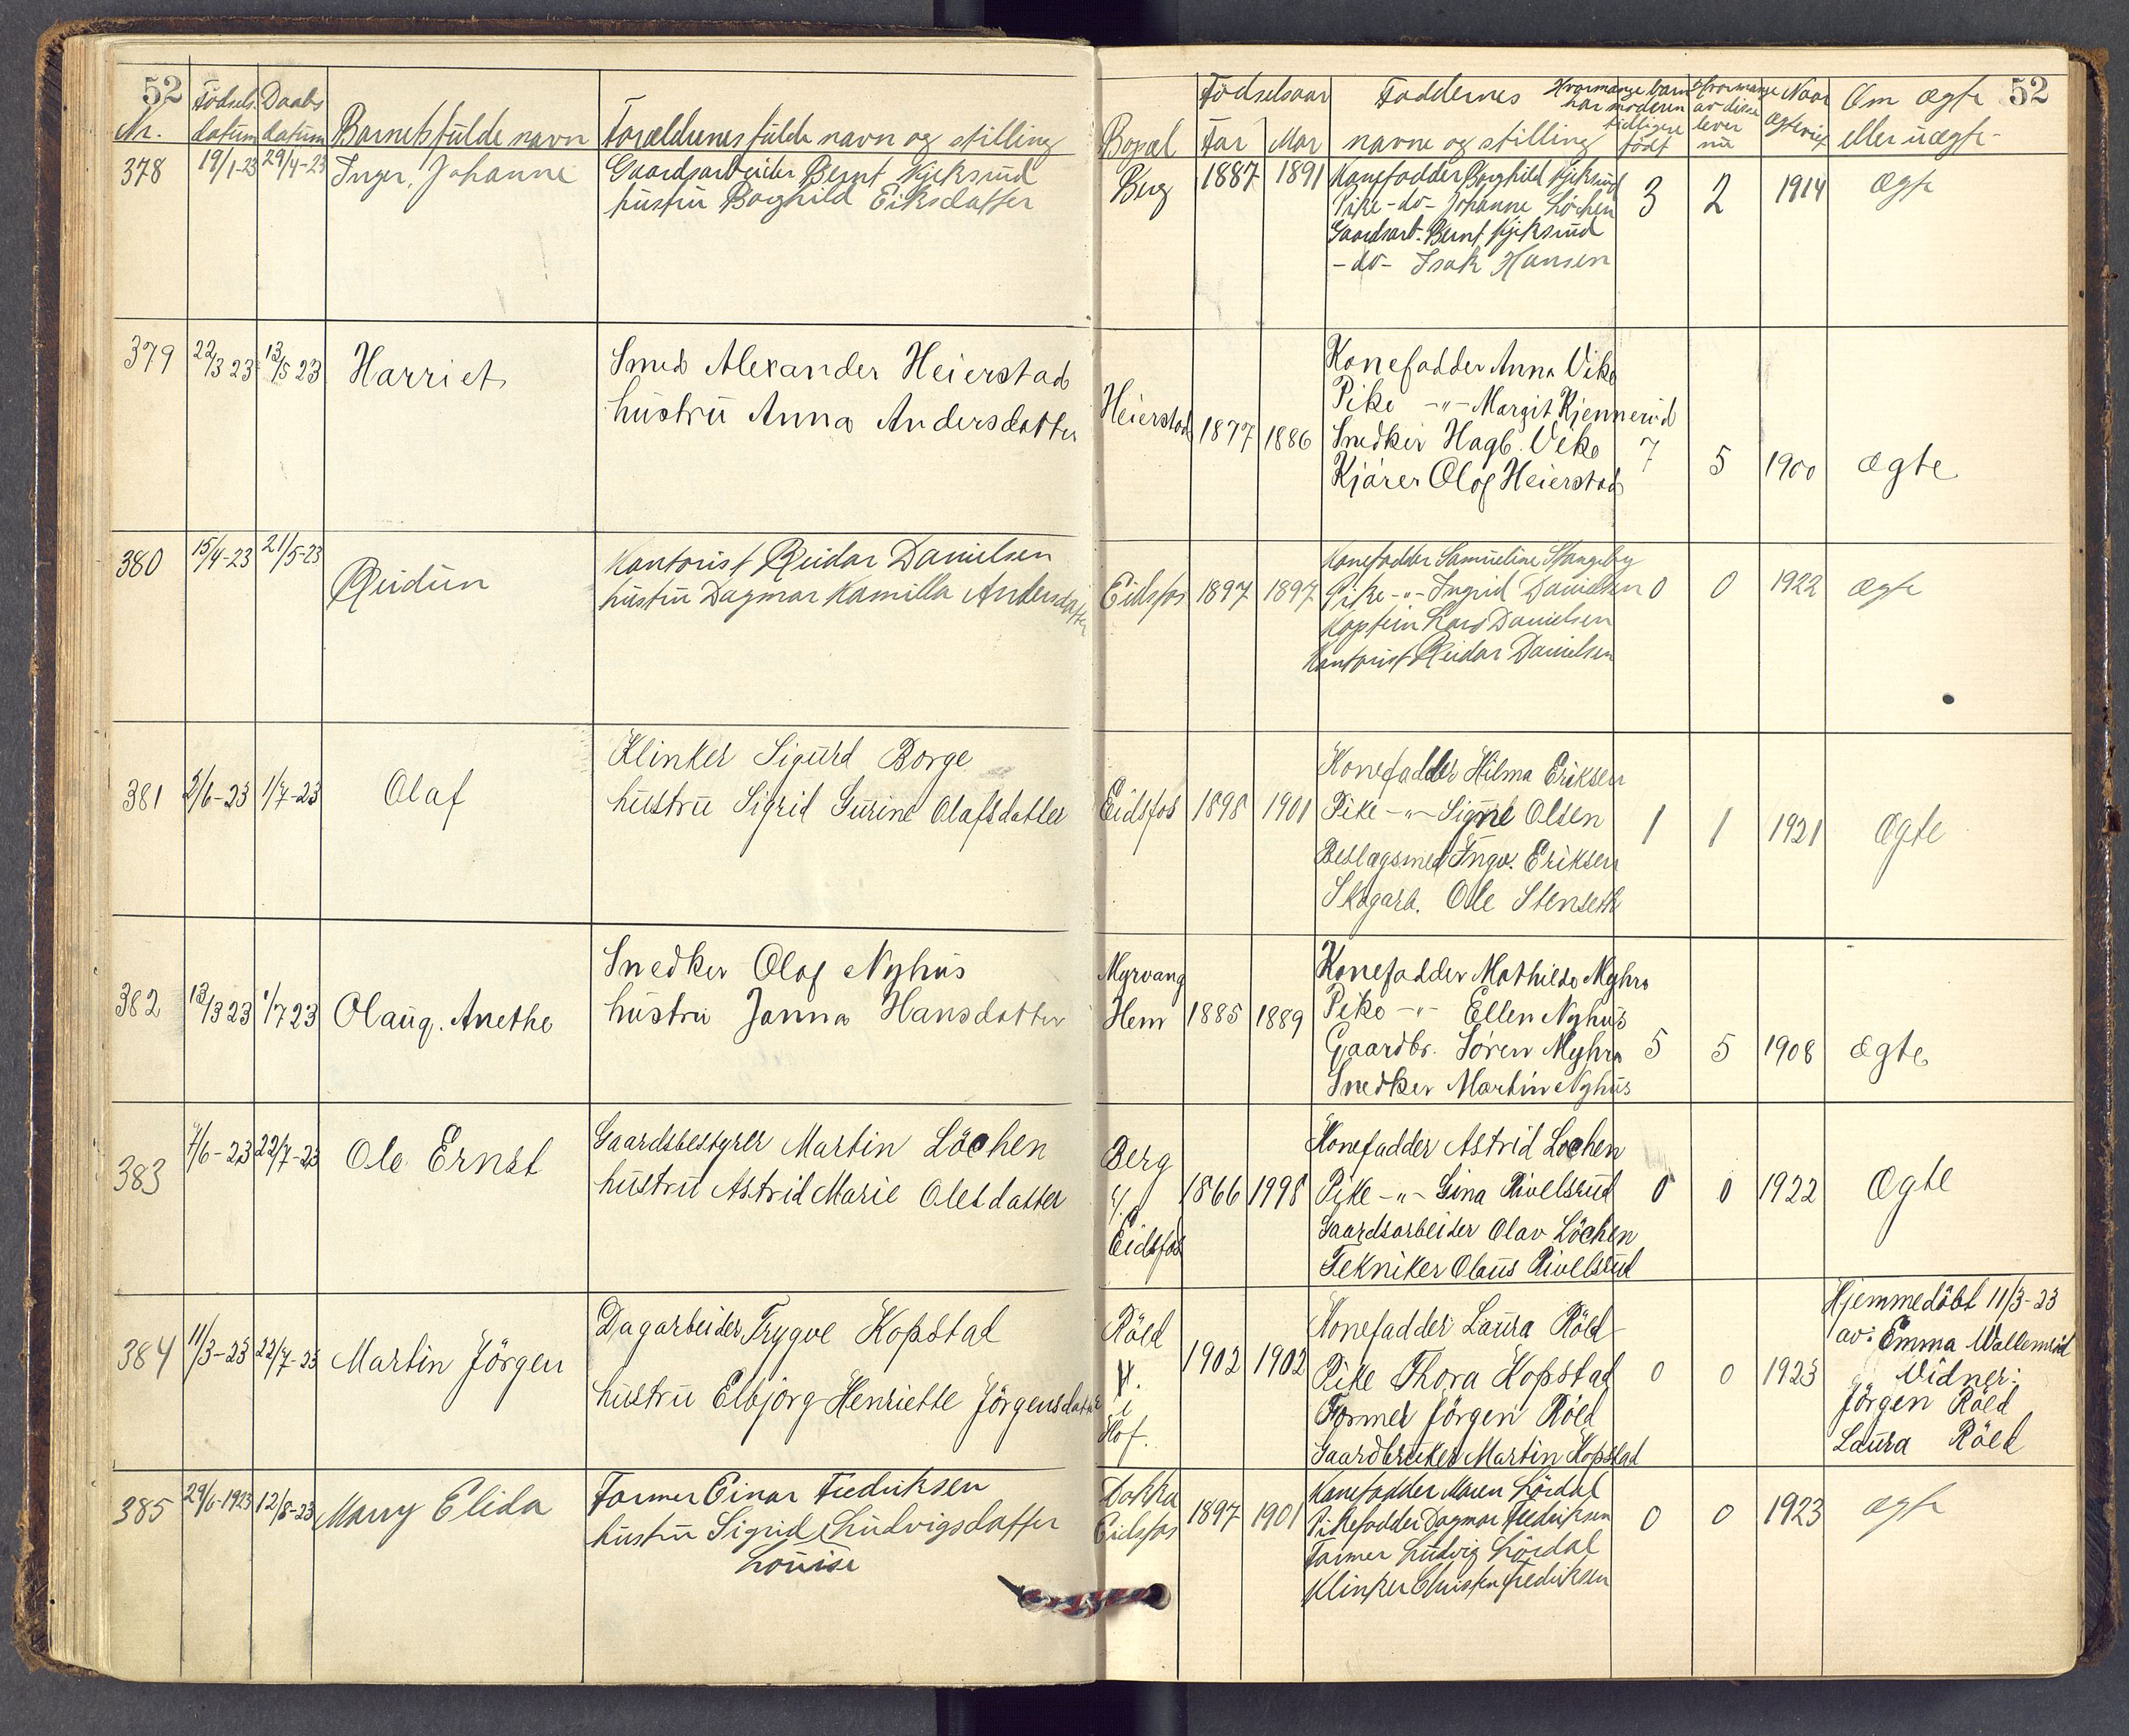 52 Fødsels Daabs
Nr. datum datum Barnets fulde navn Forældrenes fulde navn og stilling
378 19/1-23 29/4-23 Inger, Johanne Gaardsarbeider Bernt Kjeksrud
hustru Boghild Eiksdatter
379 22/3 23 13/5 23 Harriet Smed Alexander Heierstad
hustru Anna Andersdatter
380 15/4-23 21/5-23 Reidun Kontorist Reidar Danielsen
hustru Dagmar Kamilla Andersdatter
381 2/6-23 1/7-23 Olaf Klinker Sigurd Borge
hustru Sigrid Gurine Olafsdatter
382 13/3 23 1/7 23 Olaug. Anethe Snedker Olof Nyhus
hustru Janna Hansdatter
383 7/6-23 22/7-23 Ole Ernst Gaardsbestyrer Martin Löchen
hustru Astrid Marie Olesdatter
384 11/3-23 22/7-23 Martin Jörgen Dagarbeider Trygve Kopstad
hustru Elbjörg Henriette Jörgensdatter
385 29/6-1923 12/8-23 Marry Elida Former Einar Fredriksen
hustru Sigrid Ludvigsdatter
Louise
Fødselsaar Faddernes Hvormange barn Hvormange Naar Om ægte 52
har moderen av disse
Bopæl Far Mor navne og stilling tidligere lever ægteviet eller uægte-
født nu
Berg 1887 1891 Konefadder Borghild Kjeksrud 3 2 1914 ægte
Pike -do- Johanne Löchen
Gaardsarb. Bernt Kjeksrud
-do- Isak Hansen
Heierstad 1877 1886 Konefadder Anna Vike
Pike -"- Margit Kjennerud
Snedker Hagb. Vike 7 5 1900 ægte
Kjører Olof Heierstad
Eidsfos 1897 1897 Konefadder Samueline Stangeby
Pike -"- Ingrid Danielsen 0 0 1922 ægte
Kaptein Danielsen
Kontorist Reidar Danielsen
Eidsfos 1898 1901 Konefadder Hilma Eriksen
Pike -"- Signe Olsen 1 1 1921 Ægte
Beslagsmed Ingv. Eriksen
Skogarb. Ole Stenseth
Myrvang Konefadder Mathilde Myhra
Hem 1885 1889 Pike -"- Ellen Nyhus
Gaardbr. Søren Myhra 5 5 1908 ægte
Snedker Martin Nyhus
Berg Konefadder Astrid Lochen
1866 1998 Pike -"- Gina Rivelsrud 0 0 1922 Ægte
Eidsfos Gaardsarbeider Olav Löchen
Tekniker Olaus Rivelsrud
Röed Konefadder Laura Röed Hjemmedöbt 11/3-23
1902 1902 Pike Thora Kopstad 0 0 1923 av: Emma Wallemrød
i Former Jörgen Röed Vidner:
Hof. Gaardbruker Martin Kopstad Jörgen Röed
Laura Röed
Dokka 1897 1901 Konefadder Maren Lördal 0 0 1923 ægte
Eidsfos Pikefadder Dagmar Fredriksen
Former Ludvig Lördal
Klinker Christen Fredriksen